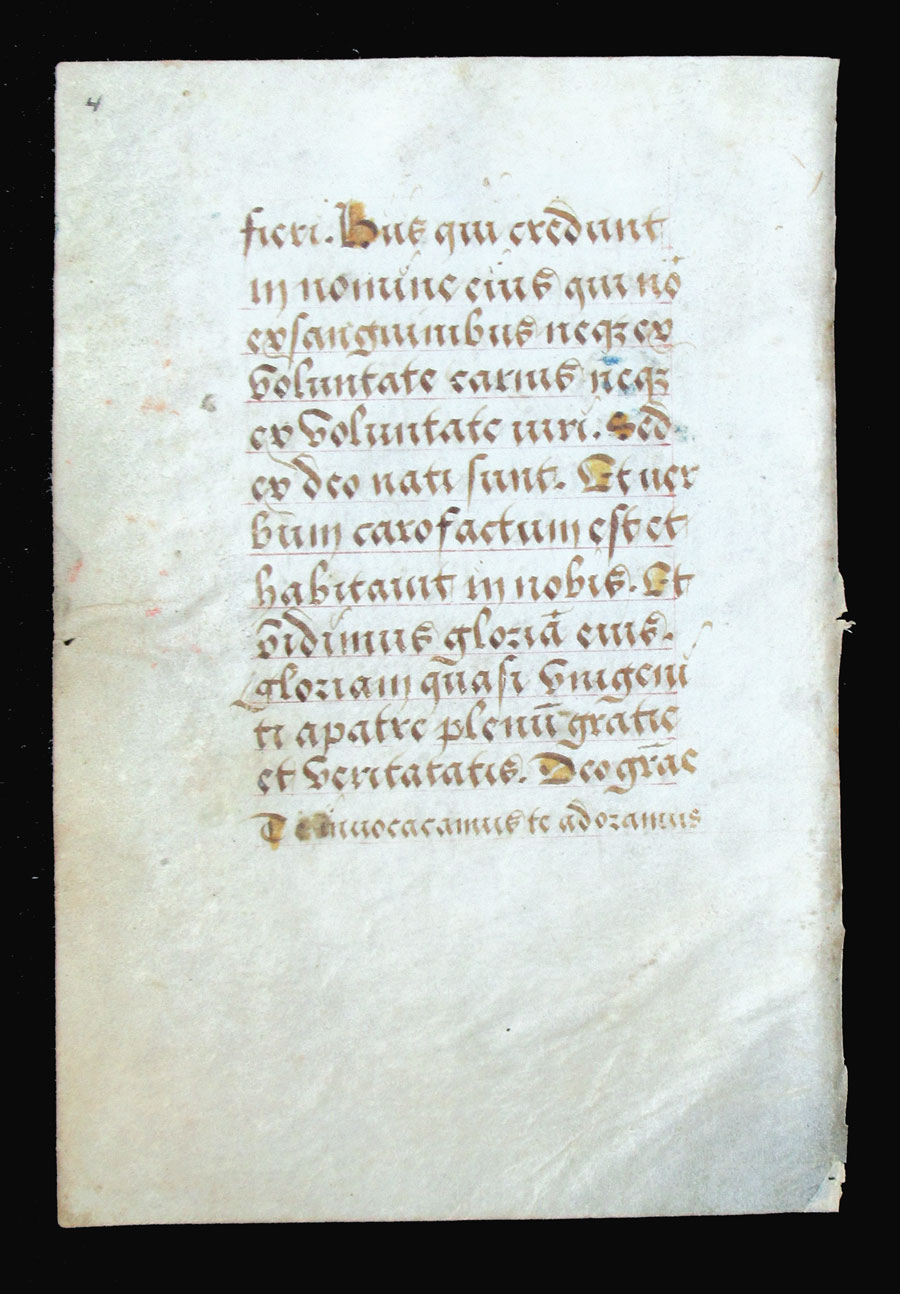 4
fieri. Hiis qui credunt
in nomine eius qui nō
ex sanguinibus neqꝫ ex
voluntate carnis neqꝫ
ex voluntate uiri. Sed
ex deo nati sunt. Et uer
bum caro factum est et
habitauit in nobis. Et
vidimus gloriā eius.
gloriam quasi vnigeni
ti a patre plenū gratie
et veritatatis. Deo grāc
Te inuocacamus te adoramus